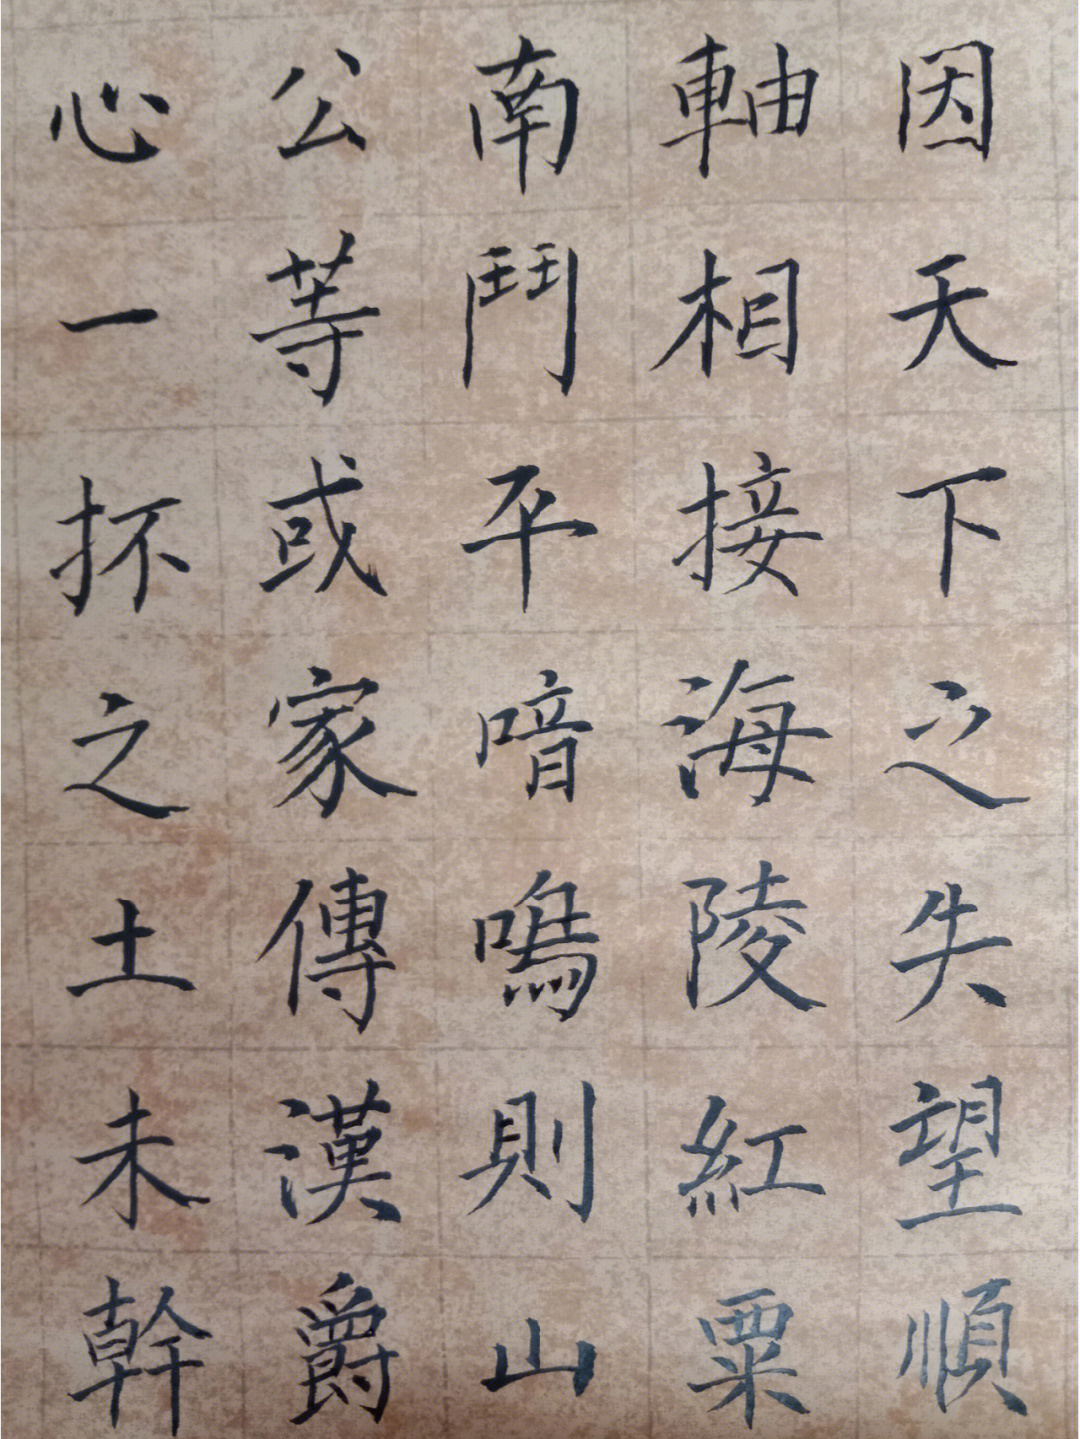 因天下之失望順
軸相接海陵紅粟
南鬥平喑嗚則山
公等或家傳漢爵
心一抔之土未幹